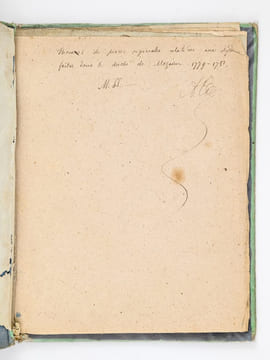 Recueil de pièces originales relatives aux
faites dans le duché de Mazarin 1779-1781.
M. SS.